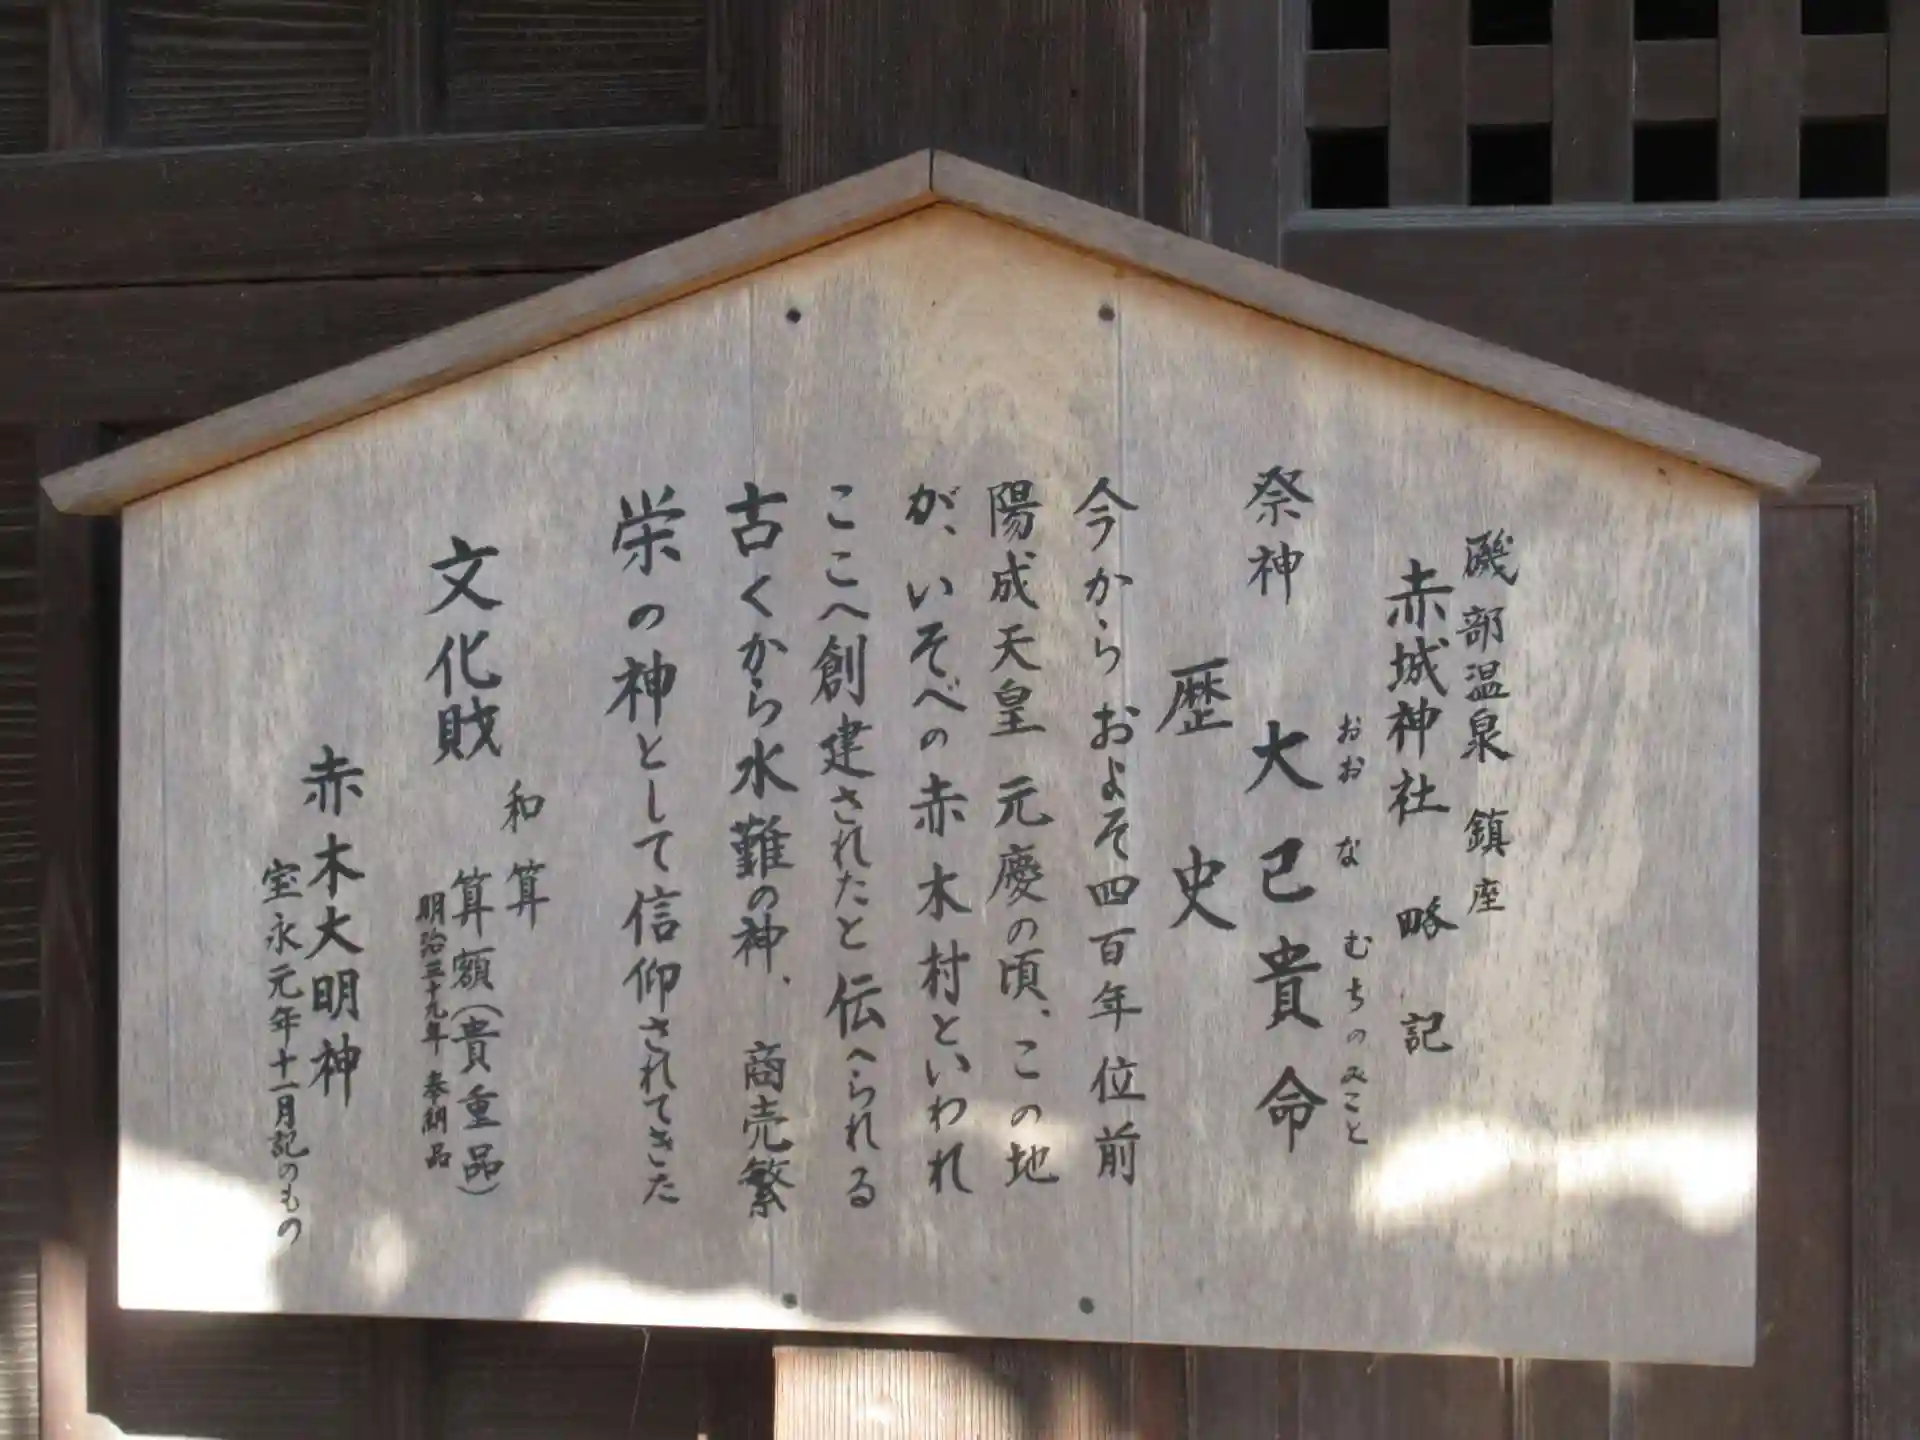 磯部温泉 鎮座
赤城神社 略記
おお な むちのみこと
祭神 大己貴命
歴史
今からおよそ四百年位前
陽成天皇 元慶の頃、この地
が、いそべの赤木村といわれ
ここへ創建されたと伝へられる
古くから水難の神、商売繁
栄の神として信仰されてきた
文化財
和算
算額(貴重品)
明治三十九年 奉納品
赤木大明神
宝永元年十一月記のもの